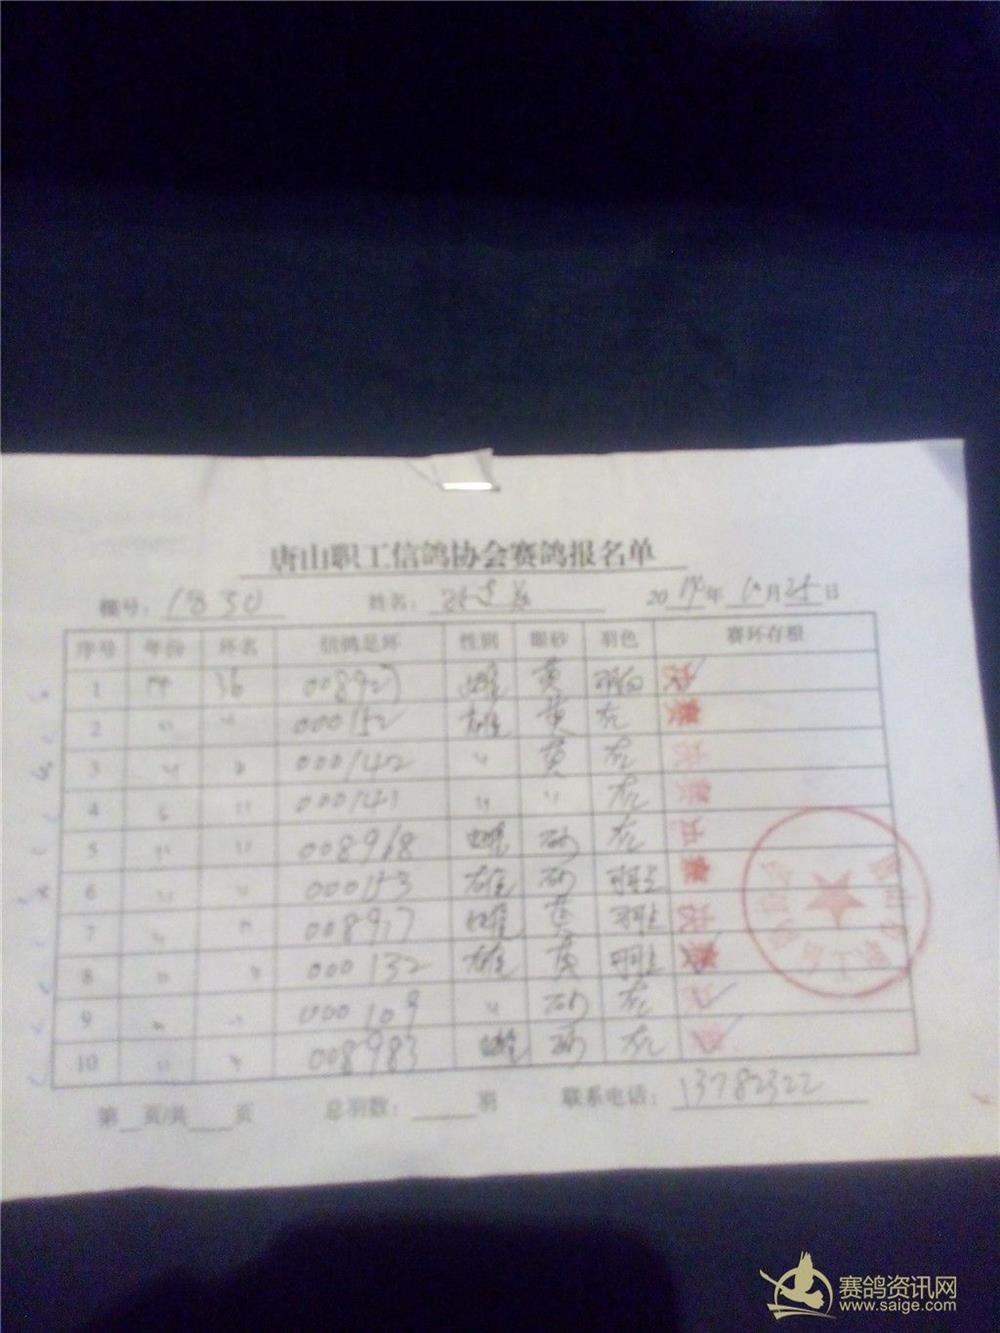 唐山职工信鸽协会赛鸽报名单
棚号：1830 姓名： 20 年 月 日
序号 年份 环名 信鸽足环 性别 眼砂 羽色 赛环存根
1 008927 雌 黄
2 000152 雄 黄 灰
3 〃 〃 000142 〃 黄 灰
4 〃 〃 000141 〃 〃 灰
5 〃 〃 008968 雌 砂 灰
6 〃 〃 000153 雄 砂
7 〃 〃 008917 雌 黄
8 〃 〃 000132 雄 黄
9 〃 〃 000109 〃 砂 灰
10 〃 〃 008983 雌 砂 灰
第 页/共 页 总羽数： 羽 联系电话：13782322
赛鸽资讯网
www.saige.com